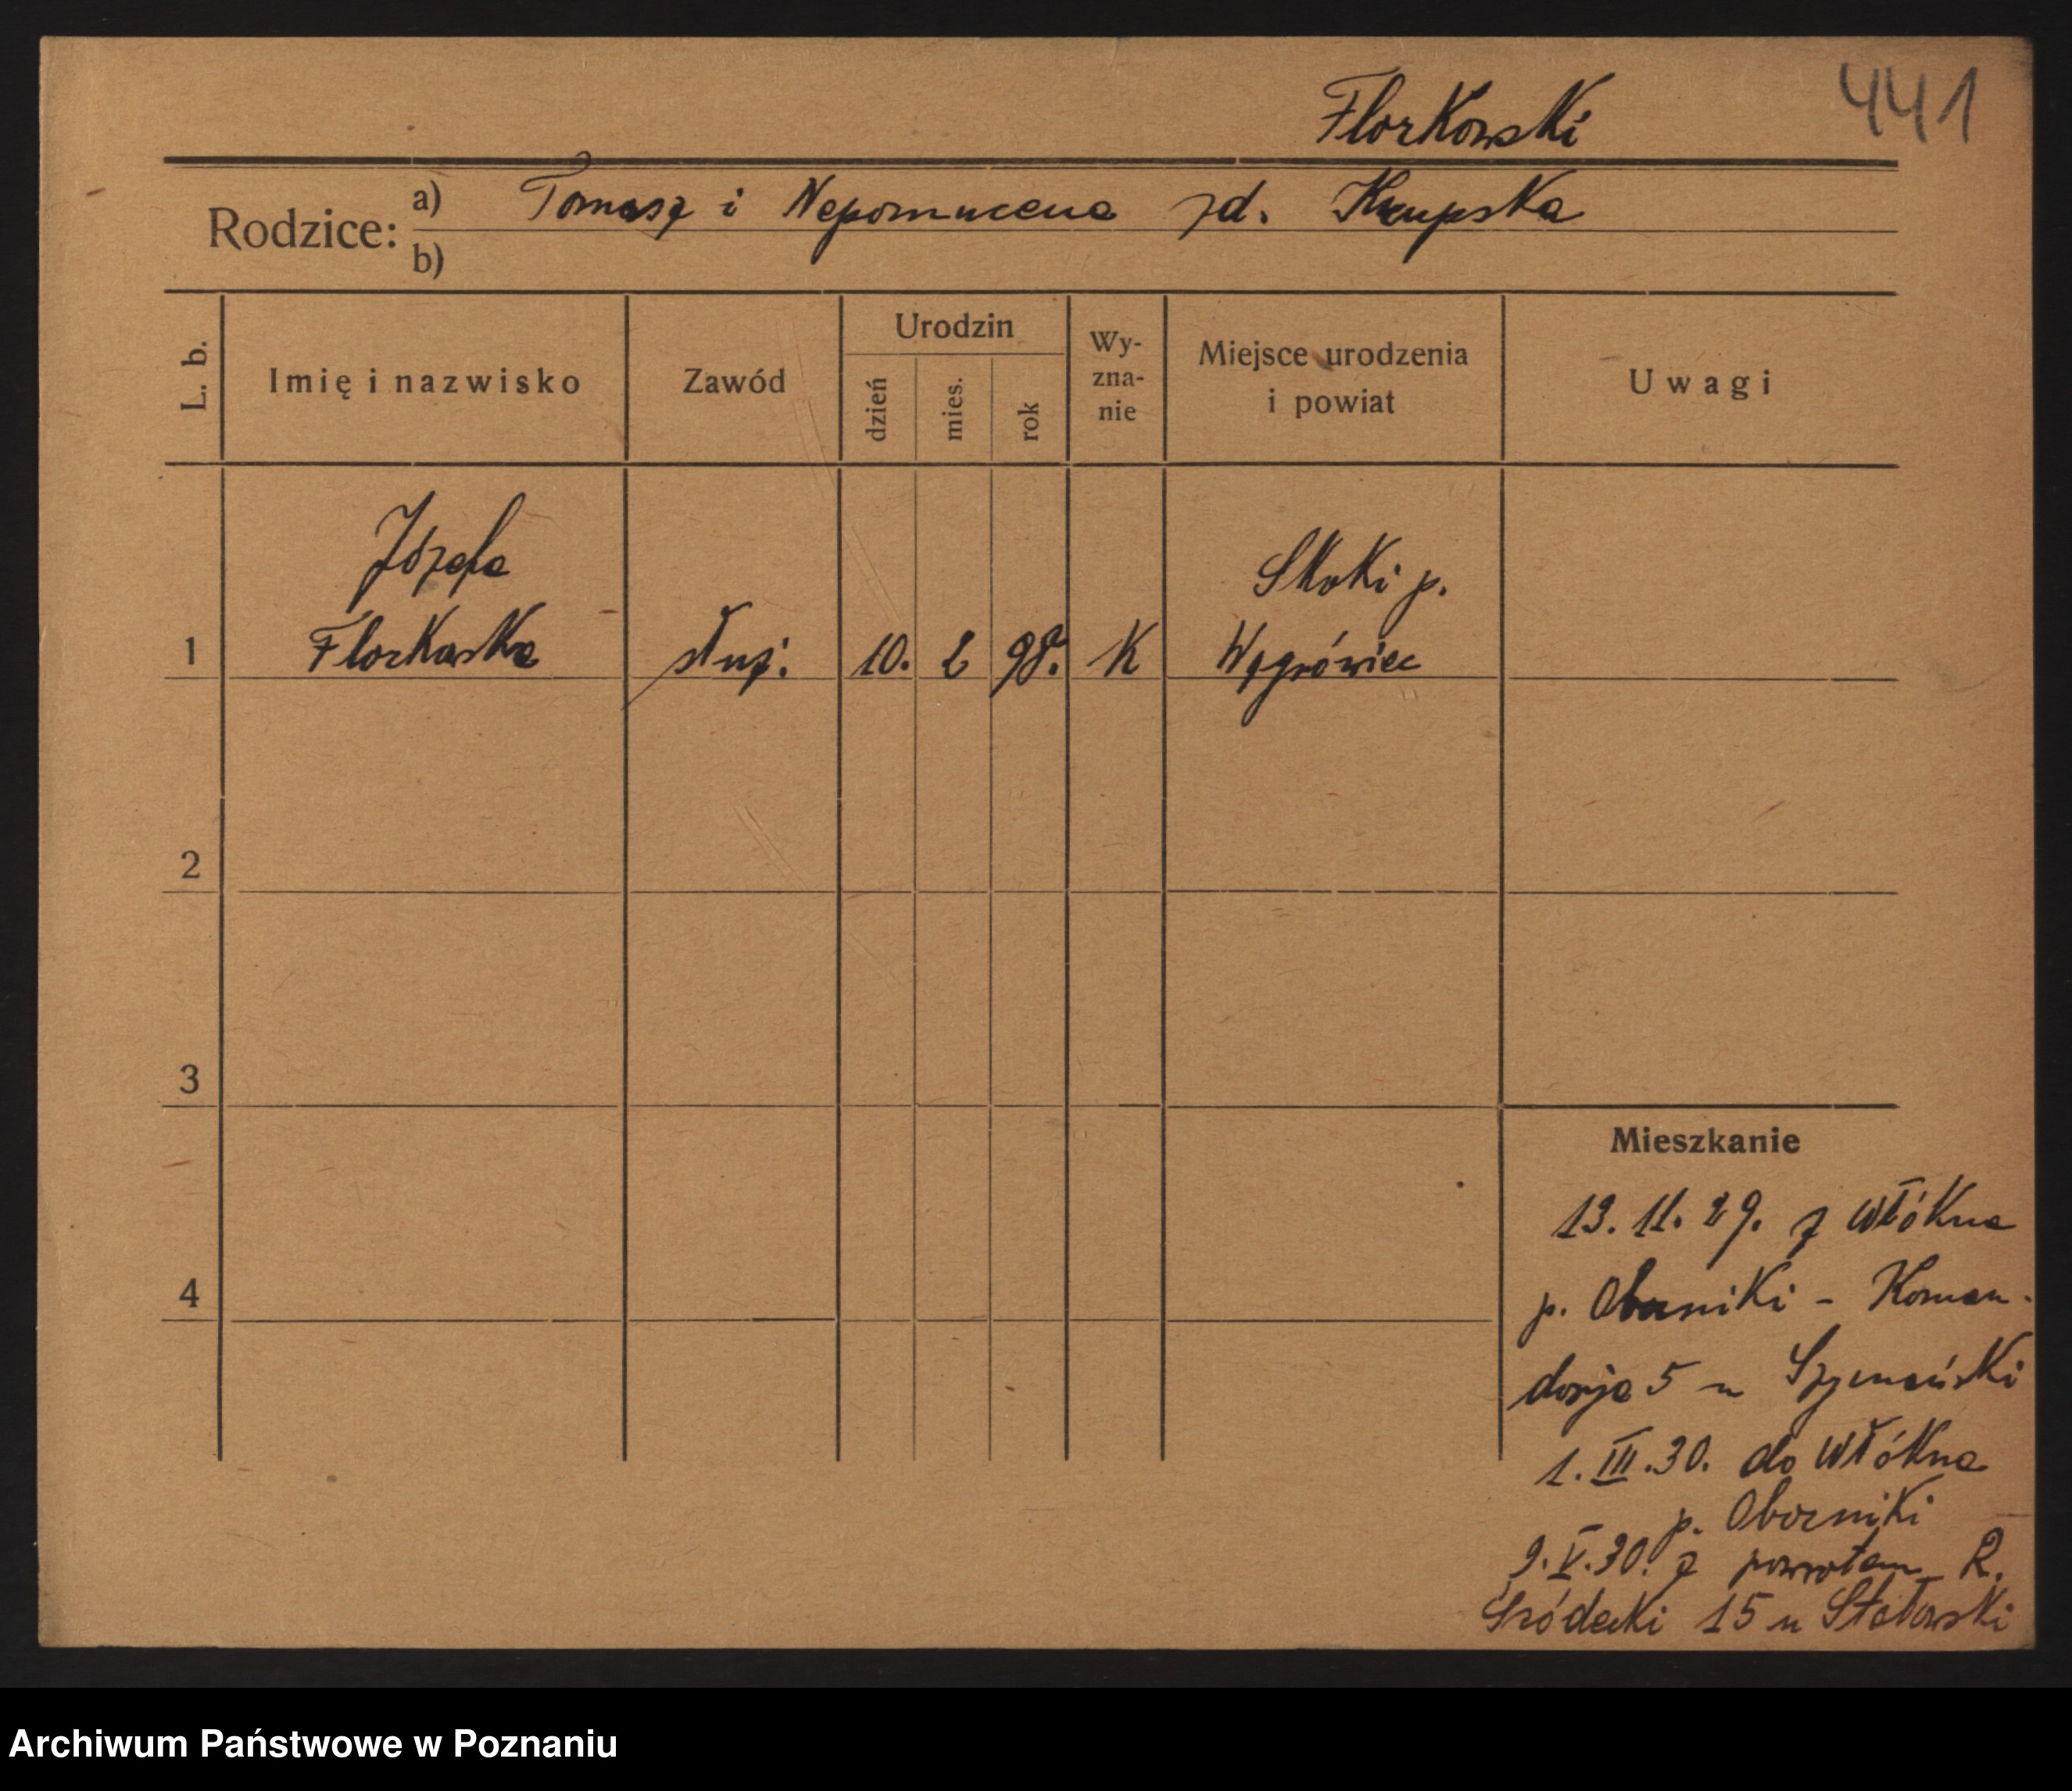 441
Florkowski
Rodzice: a) Tomasz i Nepomucena zd. Krupska
b)
L. b. Imię i nazwisko Zawód Urodzin dzień mies. rok Wy-zna-nie Miejsce urodzenia i powiat Uwagi
Józefa Skoki p.
1 Florkowska służ. 10. 2 98. K Wągrówiec
2
3
4
Mieszkanie
13. 11. 29. z Włókna
p. Oborniki - Koman-
dorja 5 u Szymański
1. III. 30. do Włókna
p. Oborniki
9. V. 30. z powrotem R.
Śródecki 15 u
Archiwum Państwowe w Poznaniu